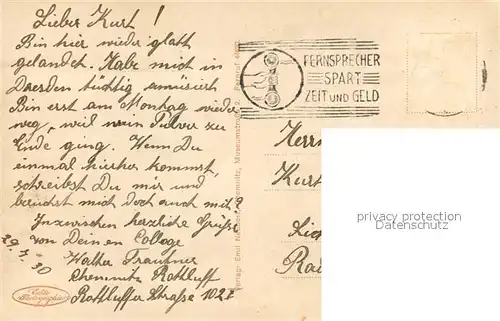 Lieber Kurt!
Bin hier wieder glatt
gelandet. Habe mich in
Dresden tüchtig amüsiert
Bin erst am Montag wieder
weg, weil mein Pulver zu
Ende ging. Wenn Du
einmal hierher kommst,
schreibst Du mir und
besuchst mich doch auch mit?
Inzwischen herzliche Grüße
von Deinen Colloge
Walter
Chemnitz Rottluff
Rottluffer Straße 102
29.4.30
Echte
Photographie
Verlag: Emil Chemnitz, Museumstr.
FERNSPRECHER
SPART
ZEIT UND GELD
Herrn
Kurt
privacy protection
Datenschutz